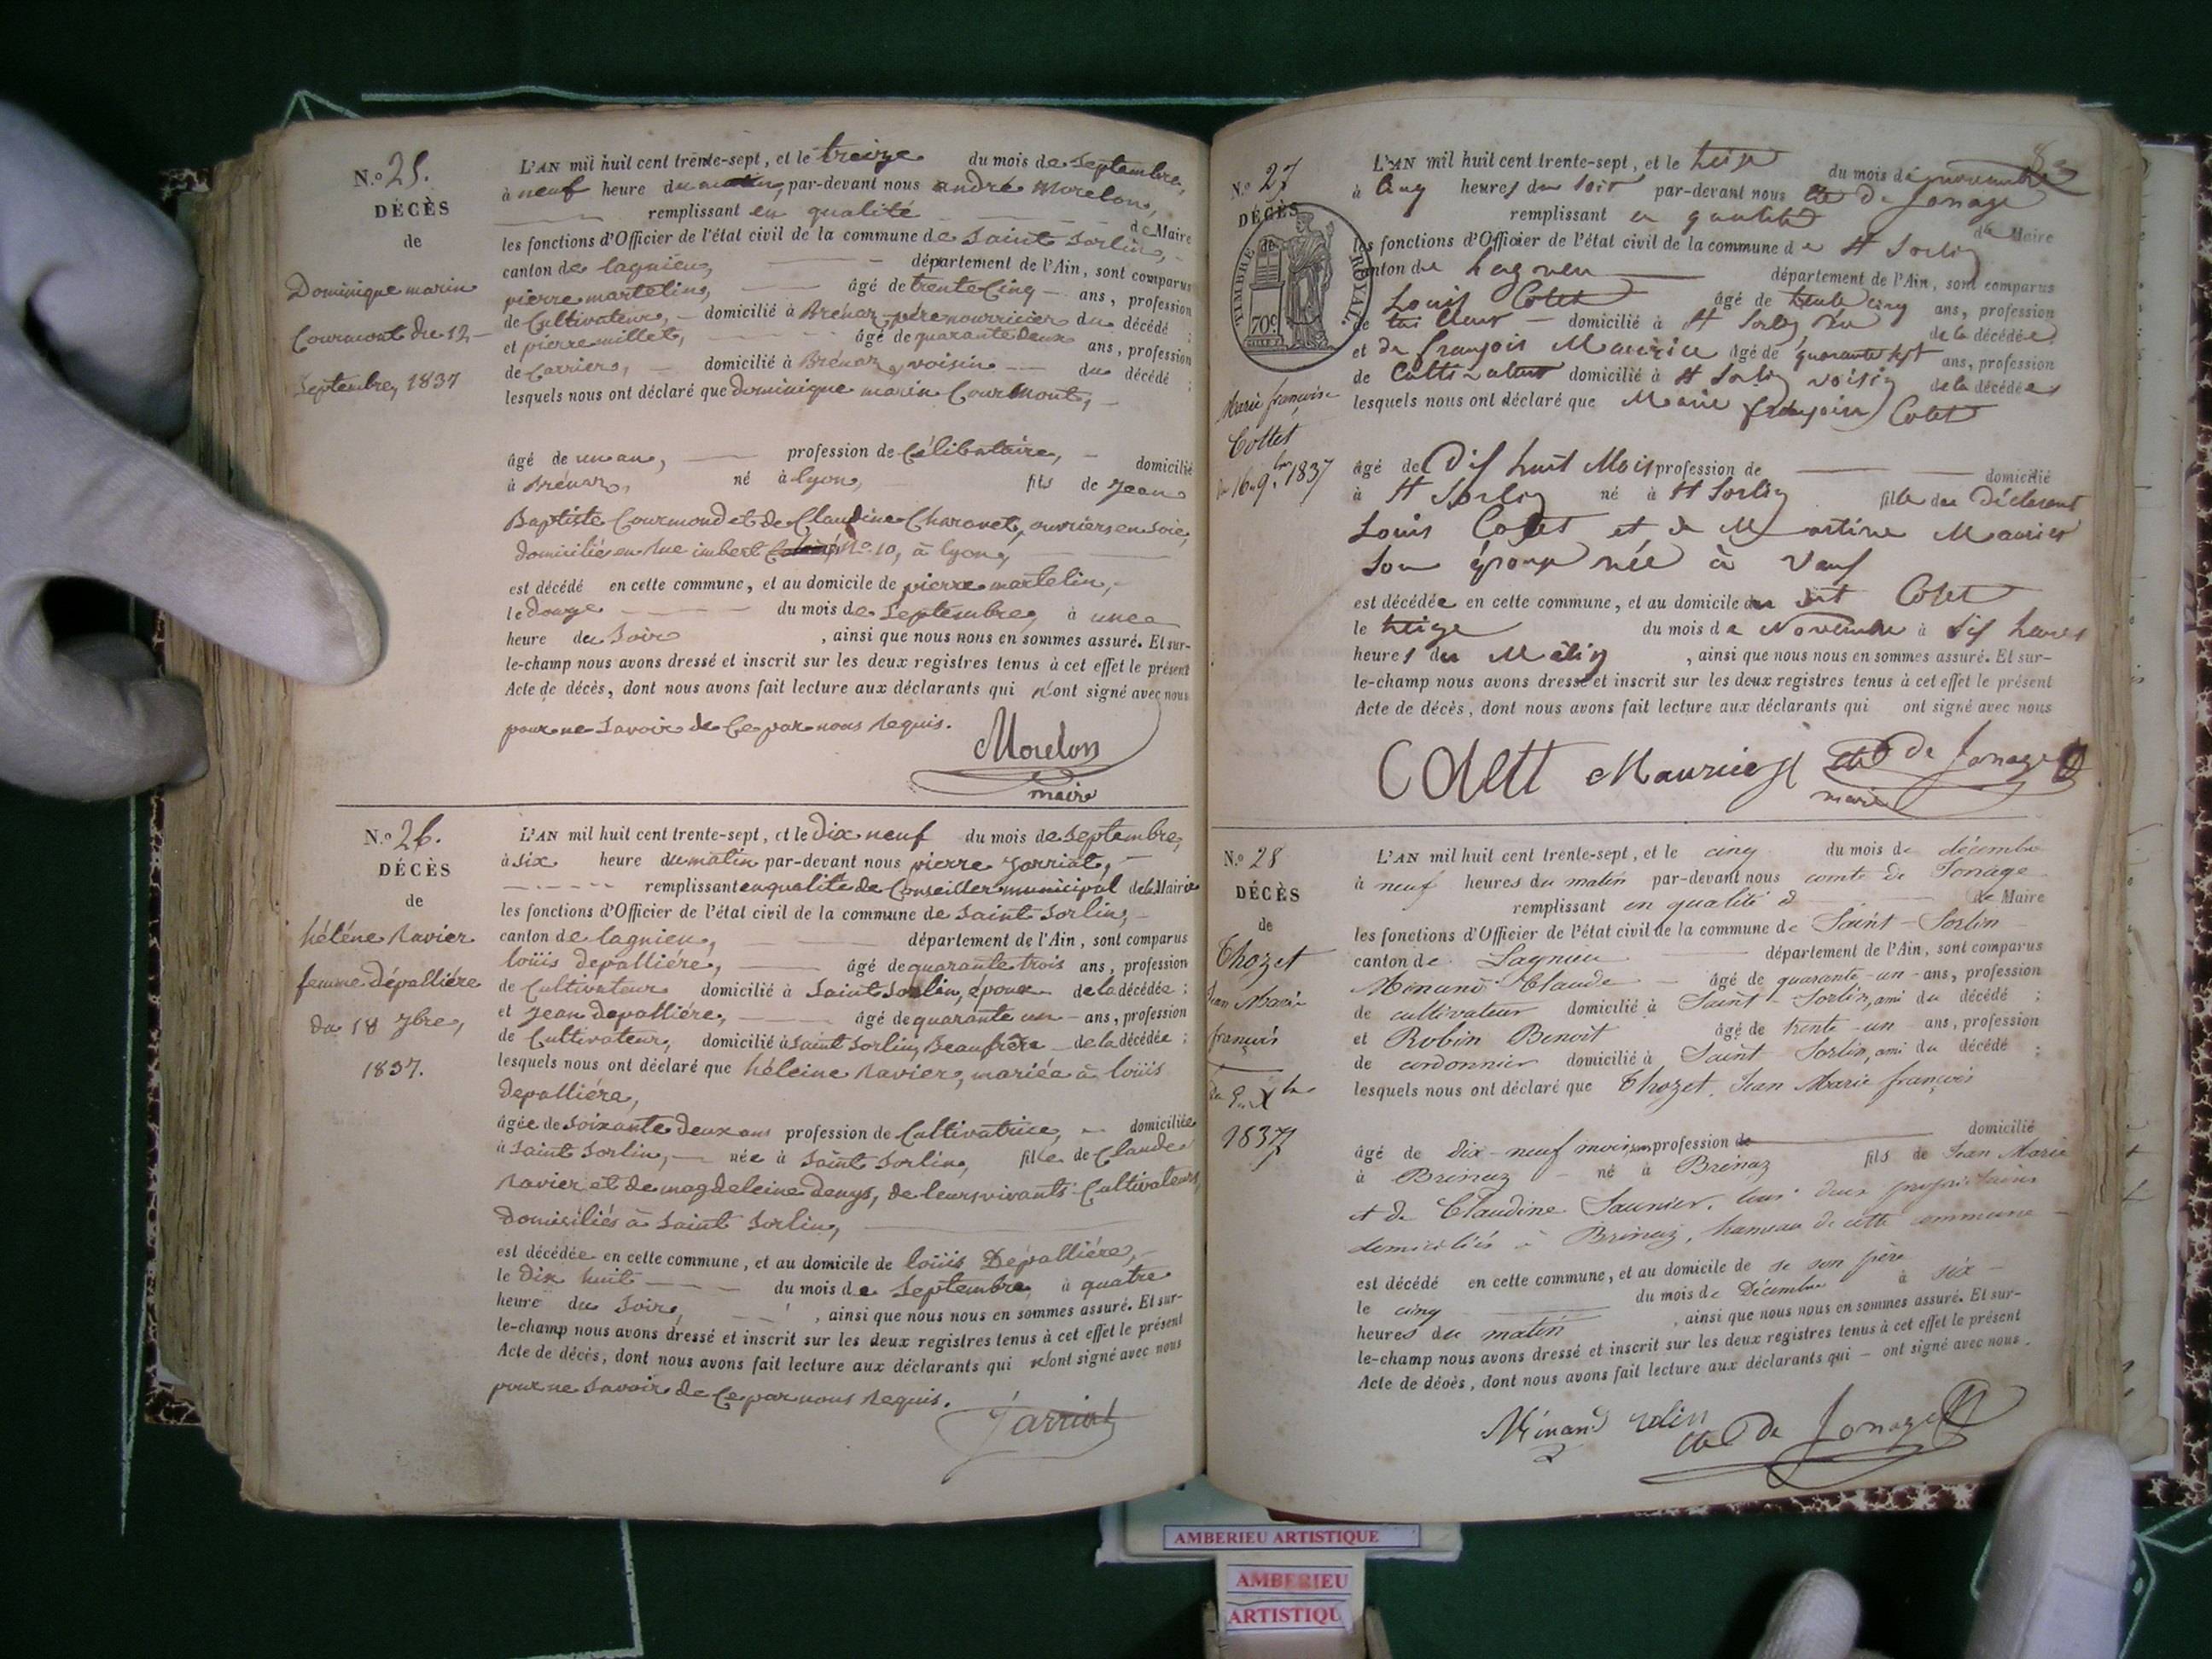 N.º 25.
DÉCÈS
de
Dominique marin
Courmont du 12
Septembre, 1837
L'AN mil huit cent trente-sept, et le treize du mois de Septembre,
à neuf heure du matin, par-devant nous andré Morelon,
remplissant en qualité de Maire
les fonctions d'Officier de l'état civil de la commune de Saint Sorlin,
canton de lagnieu, département de l'Ain, sont comparus
pierre martelin, âgé de trente Cinq ans, profession
de Cultivateur, domicilié à Brénaz, père nourricier du décédé ;
et pierre millet, âgé de quarante deux ans, profession
de Carrier, domicilié à Brénaz, voisin du décédé ;
lesquels nous ont déclaré que dominique marin Courmont,
âgé de un an, profession de Célibataire, domicilié
à Brénaz, né à lyon, fils de Jean
Baptiste Courmond et de Claudine Charonet, ouvriers en Soie,
domiciliés en Rue imbert N.o 10, à lyon,
est décédé en cette commune, et au domicile de pierre martelin,
le douze du mois de Septembre, à une
heure du Soir , ainsi que nous nous en sommes assuré. Et sur-
le-champ nous avons dressé et inscrit sur les deux registres tenus à cet effet le présent
Acte de décès, dont nous avons fait lecture aux déclarants qui n'ont signé avec nous
pour ne Savoir de Ce par nous Requis.
Morelon
maire
N.º 26.
DÉCÈS
de
hélène Ravier
femme dépallière
du 18 7bre,
1837.
L'AN mil huit cent trente-sept, et le Dix neuf du mois de Septembre,
à six heure du matin par-devant nous pierre Jarriat,
remplissant en qualité de Conseiller municipal de la Mairie
les fonctions d'Officier de l'état civil de la commune de Saint Sorlin,
canton de lagnieu, département de l'Ain, sont comparus
loüis depalliére, âgé de quarante trois ans, profession
de Cultivateur domicilié à Saint Sorlin, époux de la décédée ;
et Jean depalliére, âgé de quarante un ans, profession
de Cultivateur, domicilié à Saint Sorlin, Beaufrère de la décédée ;
lesquels nous ont déclaré que héleine Ravier, mariée à loüis
depalliére,
âgée de soixante deux ans profession de Cultivatrice, domiciliée
à Saint Sorlin, née à Saint Sorlin, fille de Claude
Ravier et de magdeleine denys, de leurs vivants Cultivateurs,
Domiciliés à Saint Sorlin,
est décédée en cette commune, et au domicile de loüis Depalliére,
le Dix huit du mois de Septembre, à quatre
heure du Soir, , ainsi que nous nous en sommes assuré. Et sur-
le-champ nous avons dressé et inscrit sur les deux registres tenus à cet effet le présent
Acte de décès, dont nous avons fait lecture aux déclarants qui n'ont signé avec nous
pour ne Savoir de Ce par nous Requis.
Jarriat
N.º 27
DÉCÈS
TIMBRE ROYAL.
70c
Marie françoise
Collet
du 16 9.bre 1837
L'AN mil huit cent trente-sept, et le treize du mois de novembre
à Cinq heures du soir par-devant nous cte De Jonage
remplissant en qualité de Maire
les fonctions d'Officier de l'état civil de la commune de St Sorlin
canton de Lagnieu département de l'Ain, sont comparus
Louis Colet âgé de trente cinq ans, profession
de tailleur domicilié à St Sorlin de la décédée
et de françois Maurice âgé de quarante sept ans, profession
de Cultivateur domicilié à St Sorlin voisin de la décédée
lesquels nous ont déclaré que Marie françoise Colet
âgé de Dix huit Mois profession de domicilié
à St Sorlin né à St Sorlin fille du Déclarant
Louis Colet et de Martine Maurier
Son épouse née à Vaux
est décédée en cette commune, et au domicile du dit Colet
le treize du mois de Novembre à dix heures
heures du Matin , ainsi que nous nous en sommes assuré. Et sur-
le-champ nous avons dressé et inscrit sur les deux registres tenus à cet effet le présent
Acte de décès, dont nous avons fait lecture aux déclarants qui ont signé avec nous
Colett Maurice cte de Jonage
maire
N.º 28
DÉCÈS
de
Thozet
Jean Marie
françois
du 5 Xbre
1837
L'AN mil huit cent trente-sept, et le cinq du mois de décembre
à neuf heures du matin par-devant nous comte de Jonage
remplissant en qualité d de Maire
les fonctions d'Officier de l'état civil de la commune de Saint-Sorlin
canton de Lagnieu département de l'Ain, sont comparus
Menand Claude âgé de quarante-un ans, profession
de cultivateur domicilié à Saint-Sorlin, ami du décédé ;
et Robin Benoit âgé de trente-un ans, profession
de cordonnier domicilié à Saint Sorlin, ami du décédé ;
lesquels nous ont déclaré que Thozet, Jean Marie françois
âgé de dix-neuf mois, sans profession de domicilié
à Brénaz né à Brénaz fils de Jean Marie
et de Claudine Saunier, tous deux propriétaires
domiciliés à Brénaz, hameau de cette commune
est décédé en cette commune, et au domicile de de son père
le cinq du mois de Décembre à six
heures du matin , ainsi que nous nous en sommes assuré. Et sur-
le-champ nous avons dressé et inscrit sur les deux registres tenus à cet effet le présent
Acte de décès, dont nous avons fait lecture aux déclarants qui ont signé avec nous.
Ménand cte De Jonage
AMBERIEU ARTISTIQUE
AMBERIEU
ARTISTIQU